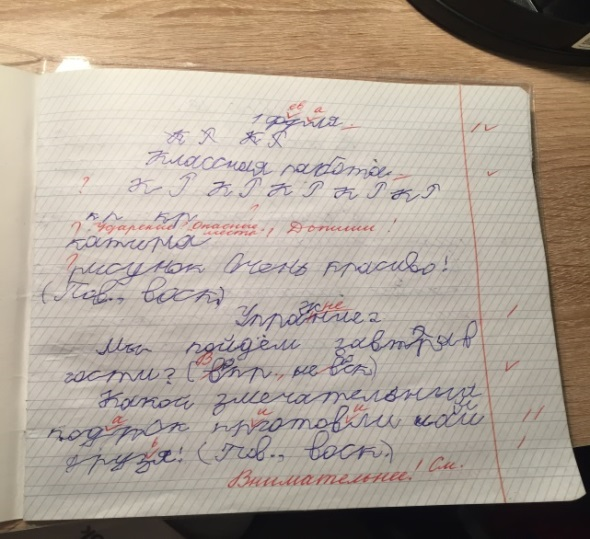 1 
К Р К Р
Классная работа.
? К Р К Р К Р К Р К Р
кр кр
? Ударение! Опасные места! Допиши!
картина
? рисунок Очень красиво!
(Пов., воск.)
Упражне 2
Мы пойдём завтра в
гости? (Впр., невск)
Какой змечательный
подарок приготовили мой
друзя! (Пов., воск.)
Внимательнее! См.